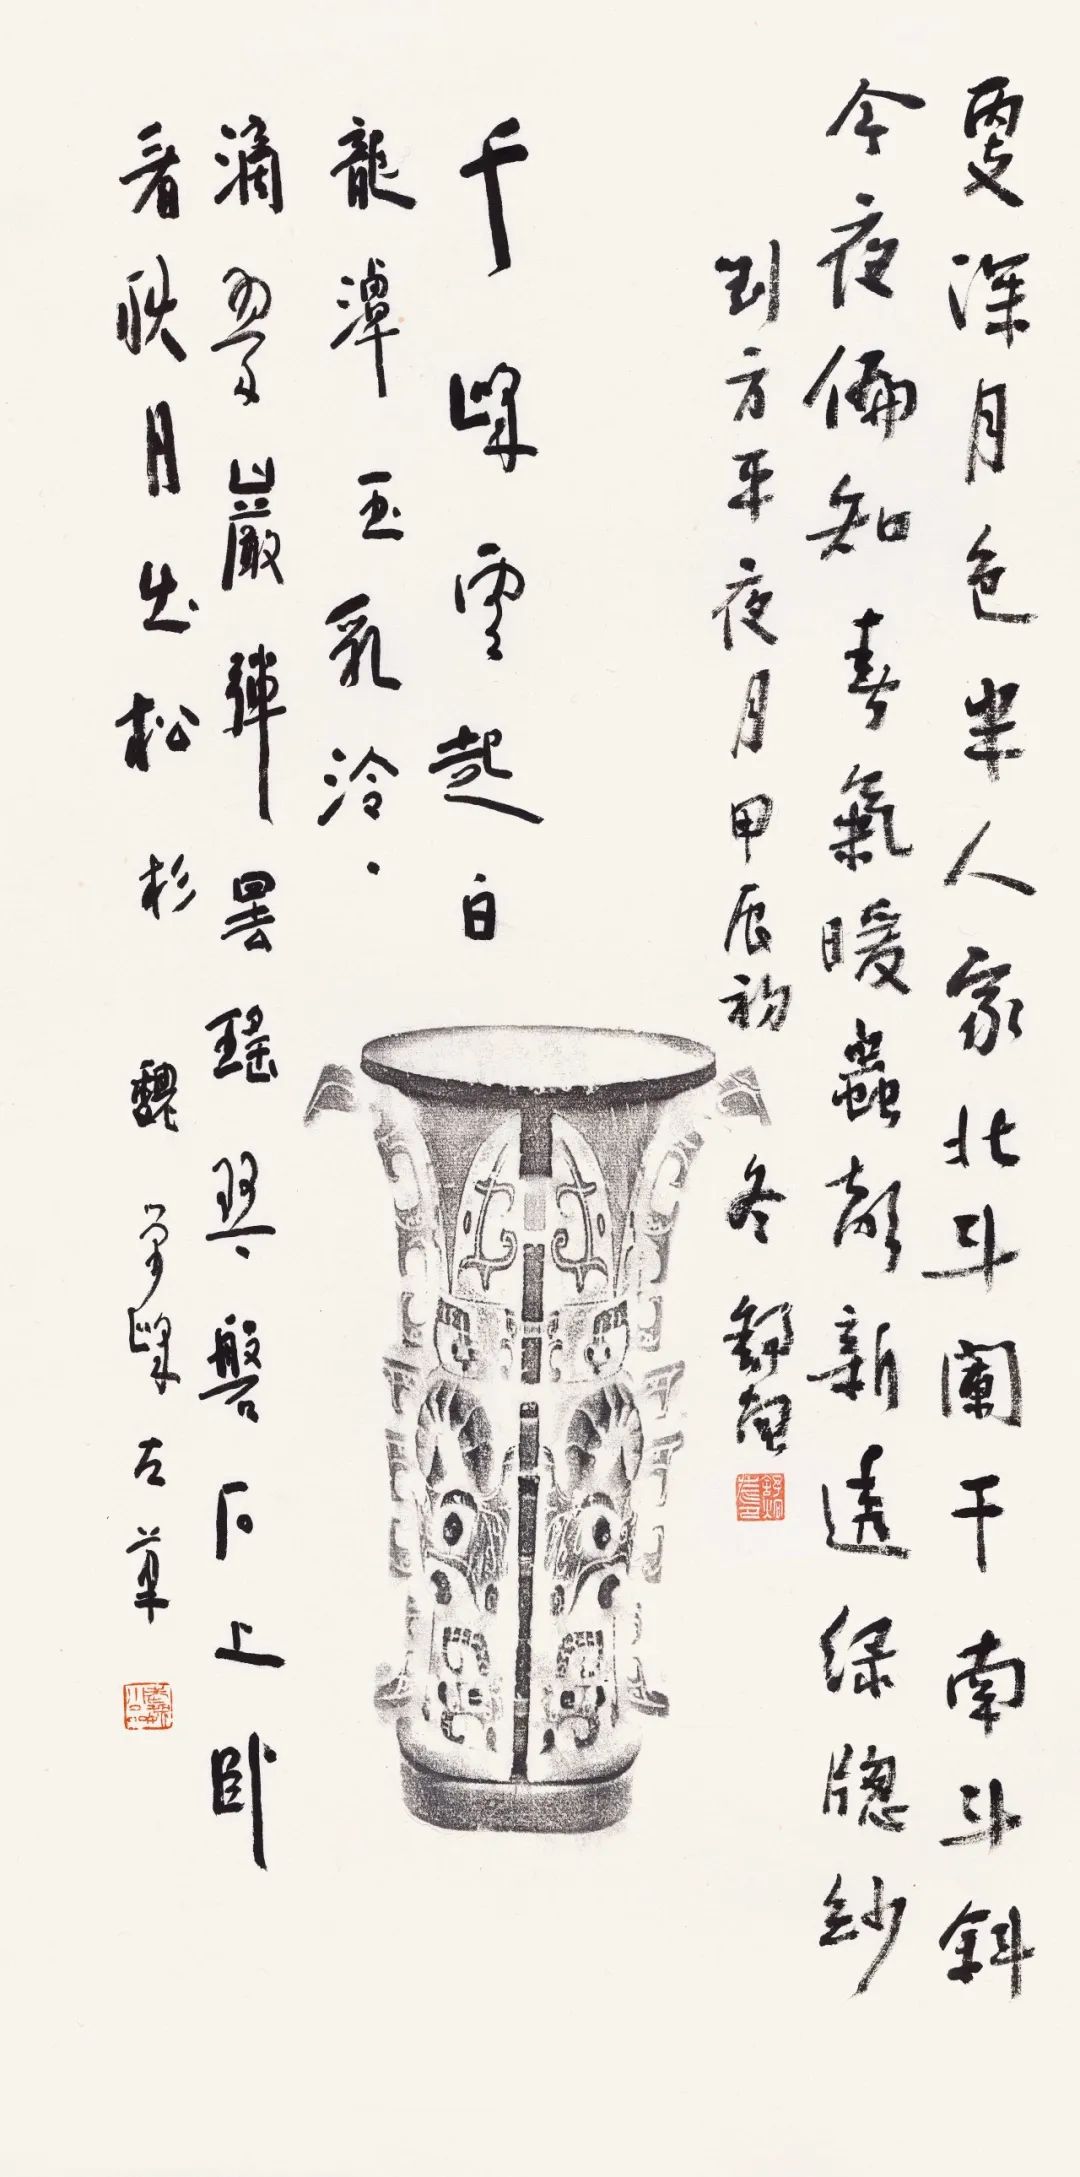 更深月色半人家北斗闌干南斗斜
今夜偏知春氣暖蟲聲新透綠牕紗
劉方平夜月甲辰初冬舒炯
千峰雲起白
龍潭玉乳泠泠
滴翠巖彈罷瑤琴盤石上臥
看秋月出松杉 魏學峰左草